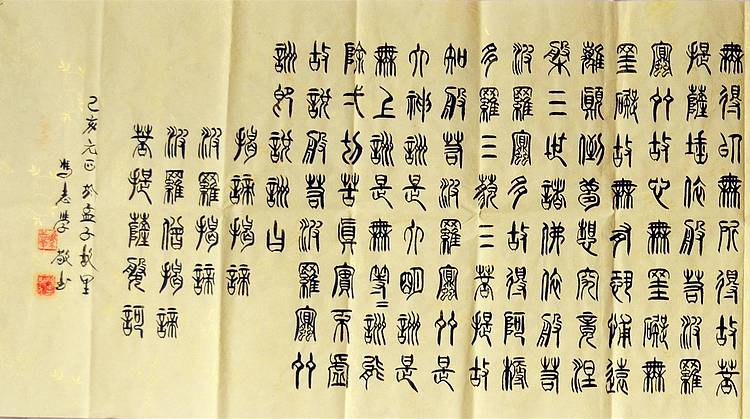 無得以無所得故菩
提薩埵依般若波羅
蜜多故心無罣礙無
罣礙故無有恐怖遠
離顛倒夢想究竟涅
槃三世諸佛依般若
波羅蜜多故得阿耨
多羅三藐三菩提故
知般若波羅蜜多是
大神詶是大明詶是
無上詶是無等=詶能
除弌切苦真實不虛
故說般若波羅蜜多
詶即說詶曰
揭諦揭諦
波羅揭諦
波羅僧揭諦
菩提薩婆訶
己亥元正於孟子故里
馮志學敬書